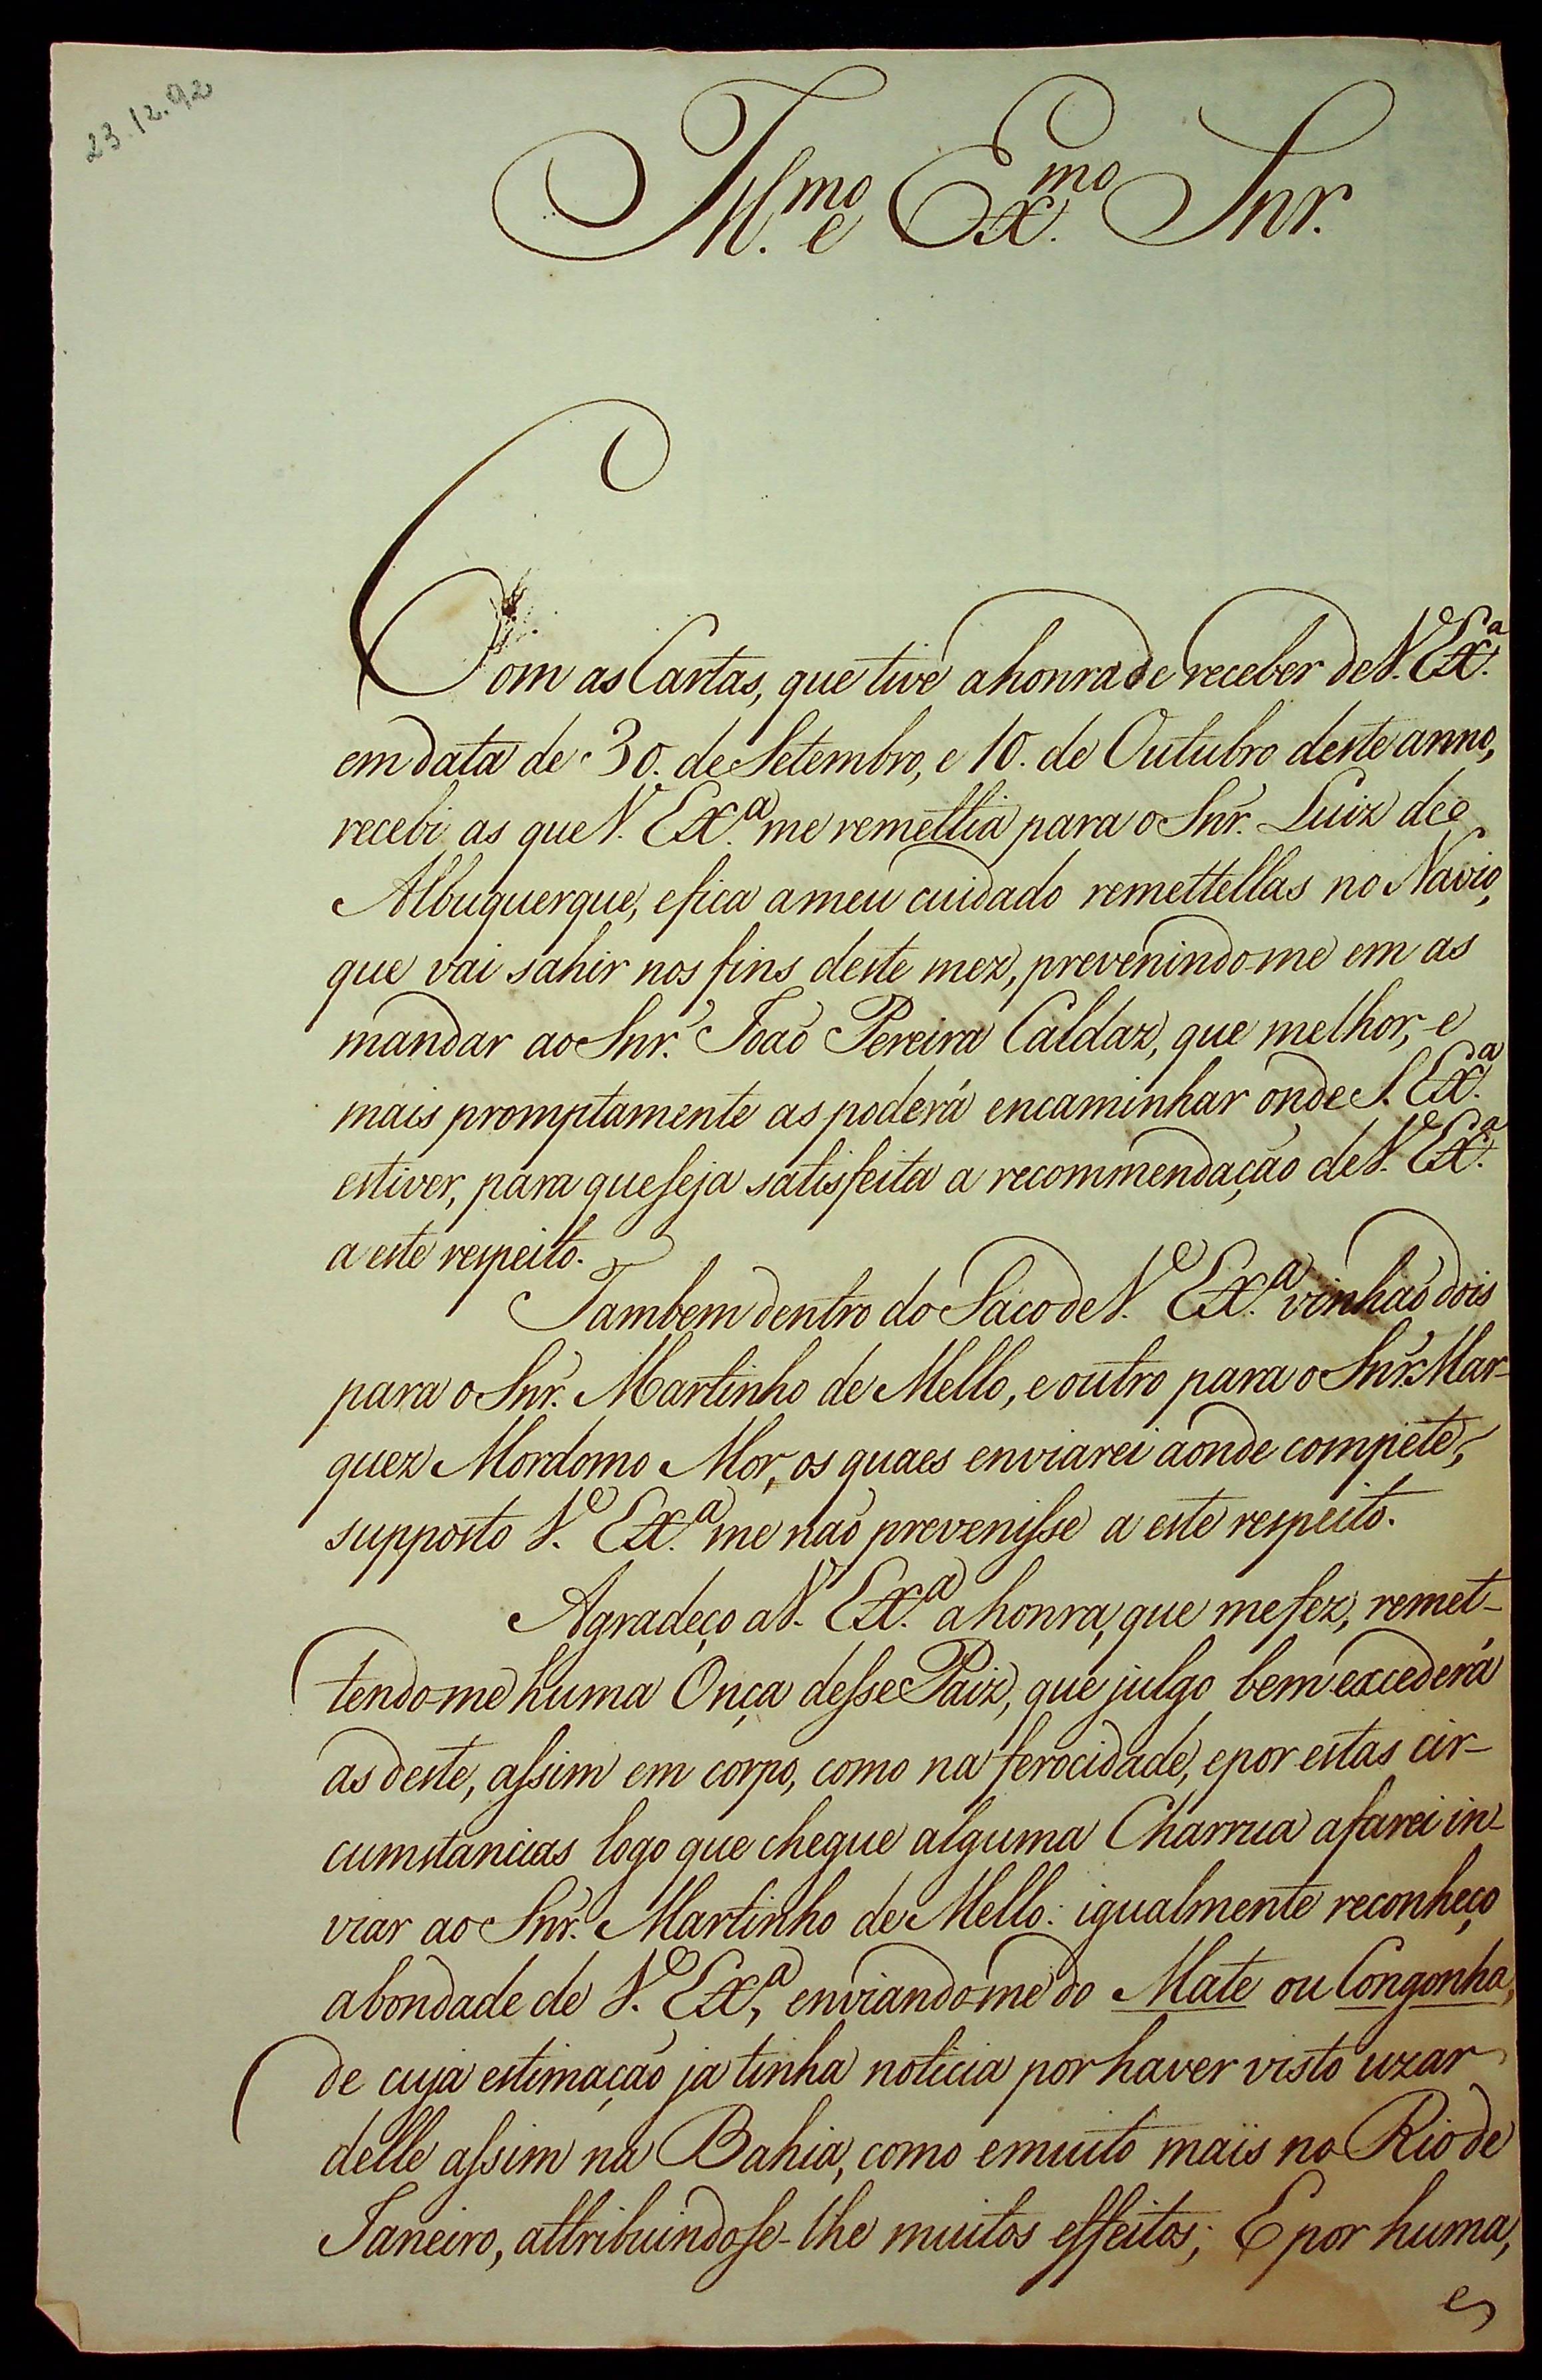 23.12.92
Ill.mo e Ex.mo Snr.
Com as Cartas, que tive a honra de receber de V. Ex.a
em data de 30. de Setembro, e 10. de Outubro deste anno,
recebi as que V. Ex.a me remettia para o Snr. Luiz de
Albuquerque, e fica a meu cuidado remettellas no Navio,
que vai sahir nos fins deste mez, prevenindo-me em as
mandar ao Snr. João Pereira Caldaz, que melhor, e
mais promptamente as poderá encaminhar onde S. Ex.a
estiver, para que seja satisfeita a recommendação de V. Ex.a
a este respeito.
Tambem dentro do Saco de V. Ex.a vinhaõ dois
para o Snr. Martinho de Mello, e outro para o Snr. Mar-
quez Mordomo Mor, os quaes enviarei aonde compete,
supposto V. Ex.a me naõ prevenisse a este respeito.
Agradeço a V. Ex.a a honra, que me fez, remet-
tendo-me huma Onça desse Paiz, que julgo bem excederá
as deste, assim em corpo, como na ferocidade, e por estas cir-
cumstancias logo que chegue alguma Charrua a farei in-
viar ao Snr. Martinho de Mello: igualmente reconheço
a bondade de V. Ex.a, enviando-me do Mate ou Congonha,
de cuja estimação ja tinha noticia por haver visto uzar
delle assim na Bahia, como e muito mais no Rio de
Janeiro, attribuindo se-lhe muitos effeitos; E por huma,
e